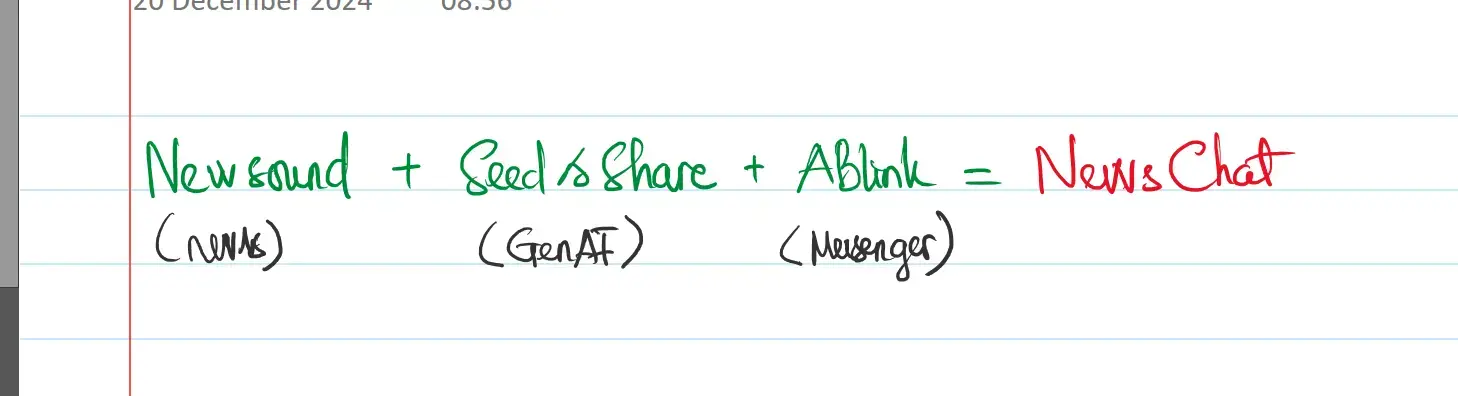 20 December 2024 08:56
Newsound + Seed & Share + ABlink = NewsChat
(news) (GenAI) (Messenger)